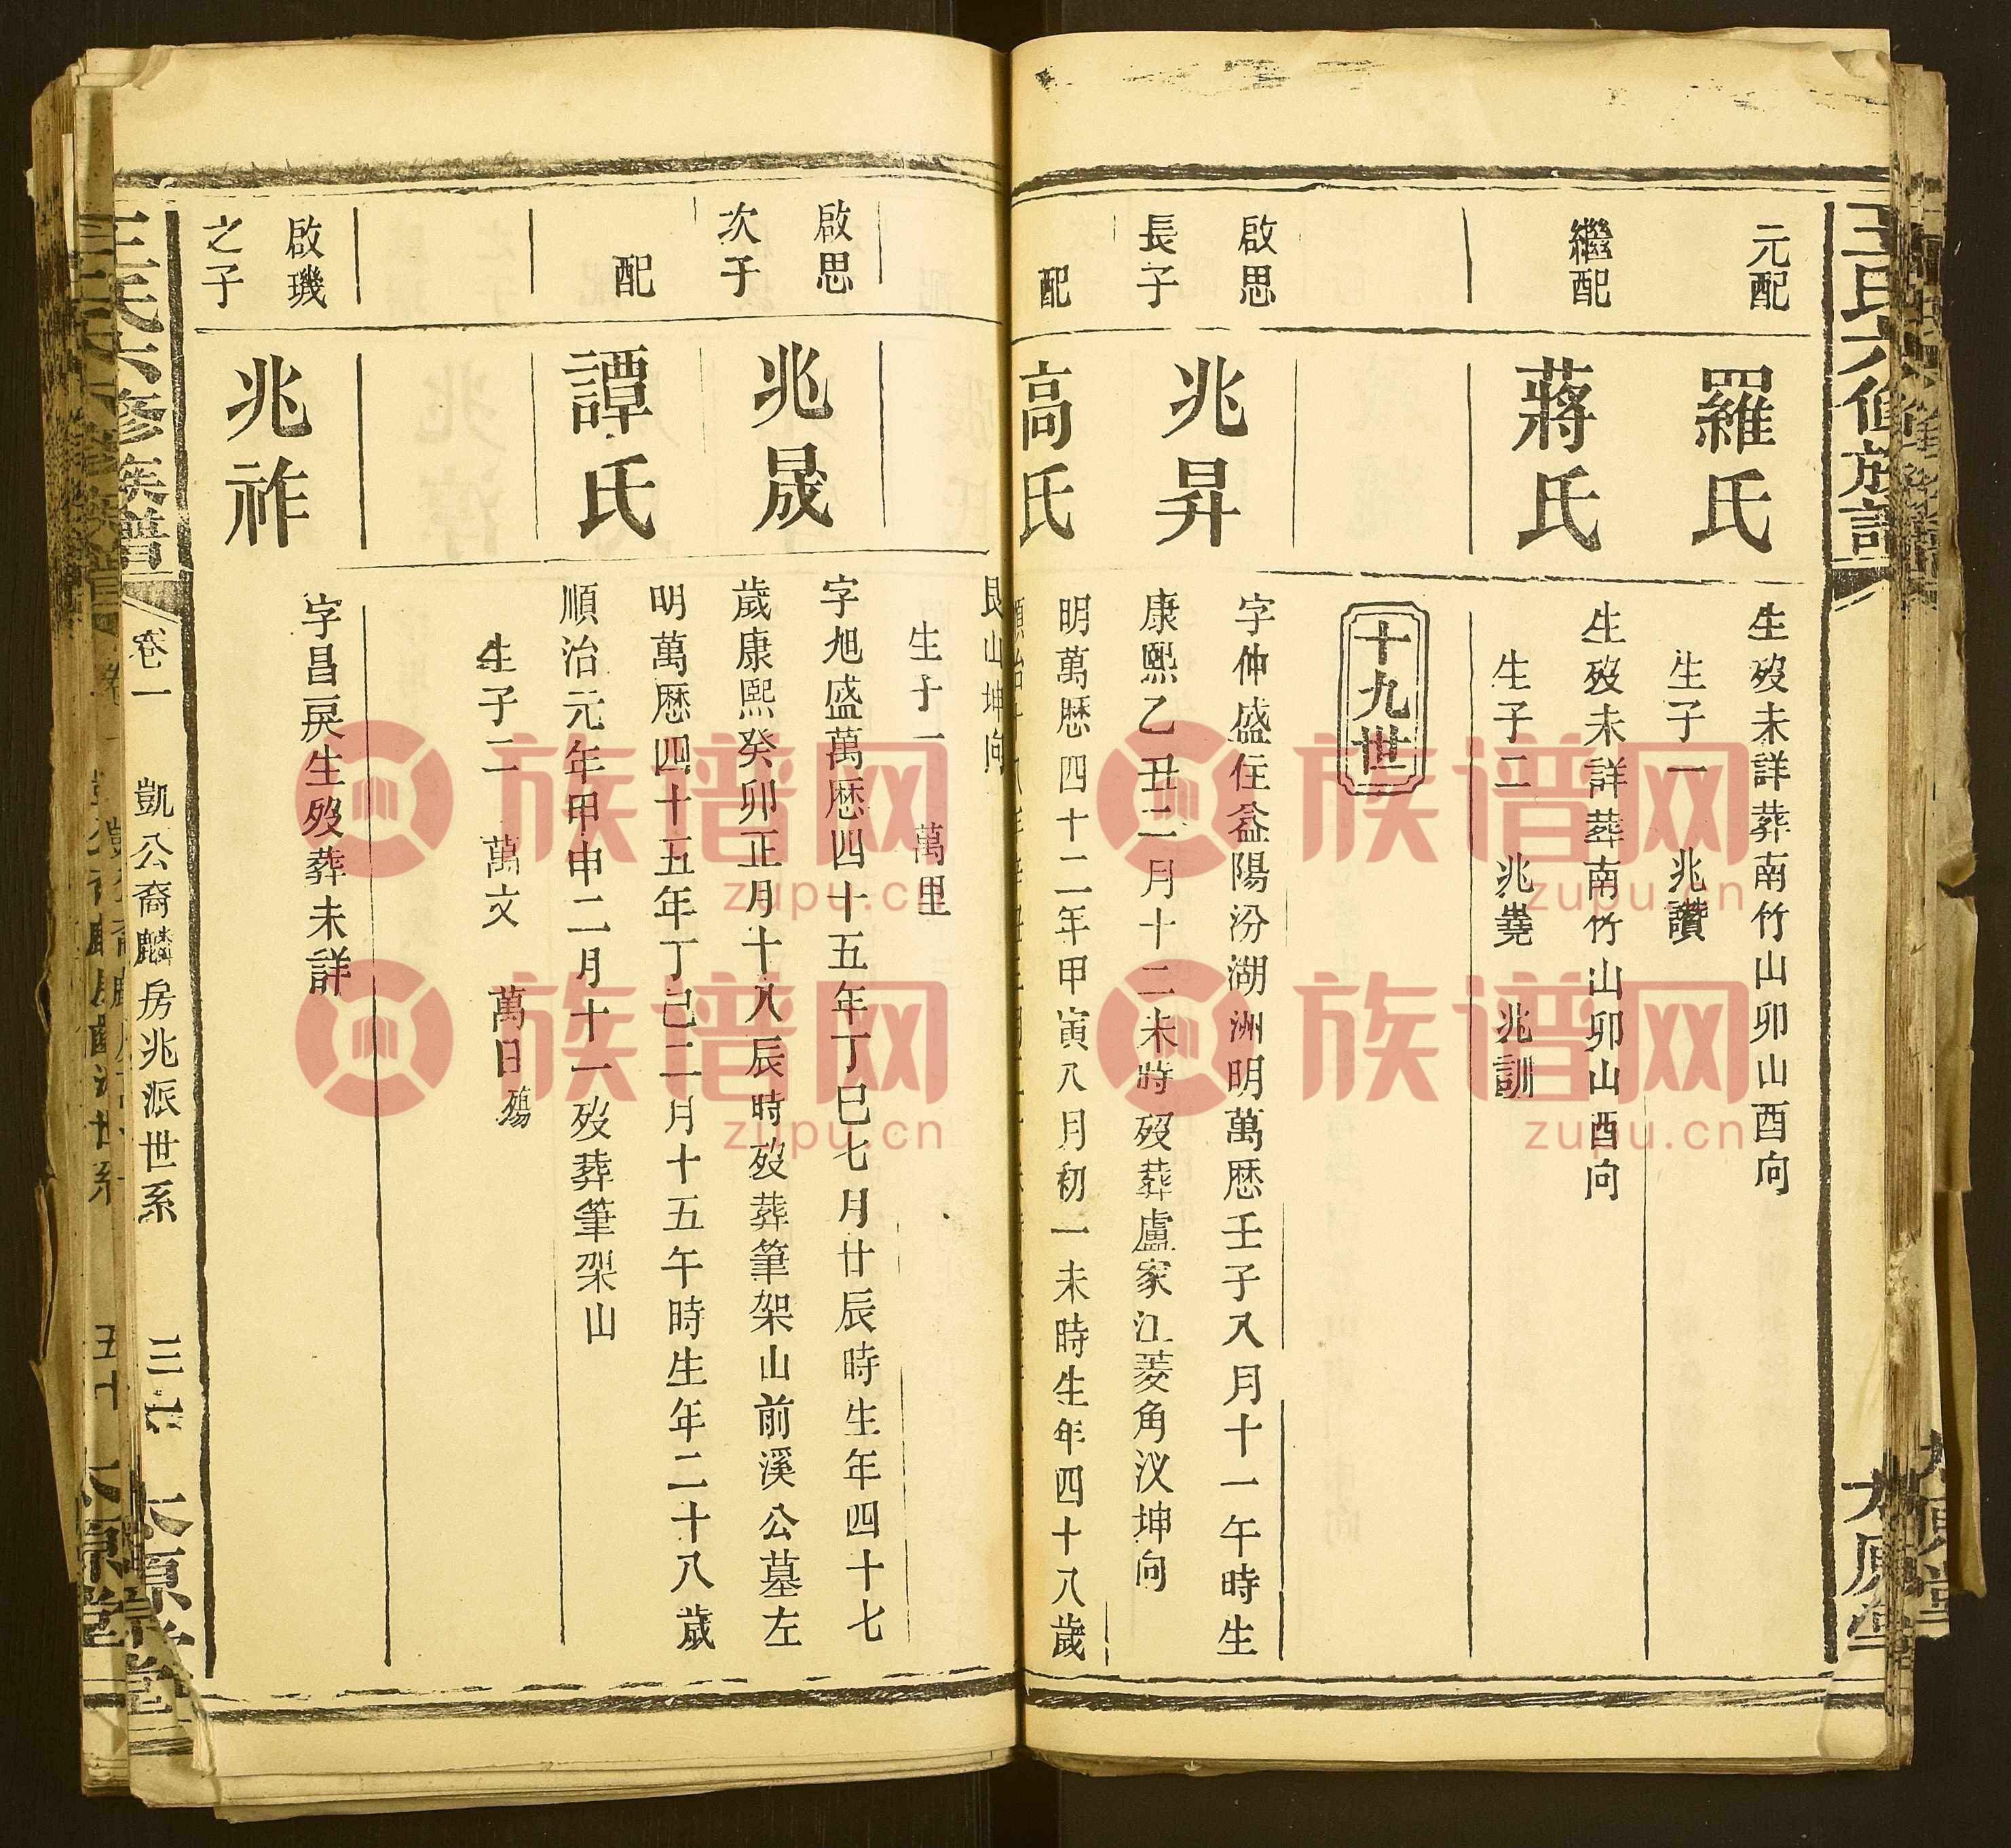 王氏六修族譜
太原堂
元配
羅氏
生歿未詳葬南竹山卯山酉向
生子一 兆讚
繼配
蔣氏
生歿未詳葬南竹山卯山酉向
生子二 兆堯 兆訓
十九世
啟思
長子
兆昇
字仲盛住益陽汾湖洲明萬歷壬子八月十一午時生
康熙乙丑二月十二未時歿葬盧家江菱角汊坤向
配
高氏
明萬歷四十二年甲寅八月初一未時生年四十八歲
艮山坤向
生子一 萬里
啟思
次子
兆晟
字旭盛萬歷四十五年丁巳七月廿辰時生年四十七
歲康熙癸卯正月十八辰時歿葬筆架山前溪公墓左
配
譚氏
明萬歷四十五年丁巳二月十五午時生年二十八歲
順治元年甲申二月十一歿葬筆架山
生子二 萬文 萬日殤
啟璣
之子
兆祚
字昌戾生歿葬未詳
王氏六修族譜
卷一
凱公裔麟房兆派世系
三六
太原堂
族谱网
zupu.cn
族谱网
zupu.cn
族谱网
zupu.cn
族谱网
zupu.cn